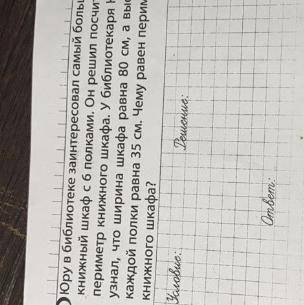 Юру в библиотеке заинтересовал самый
книжный шкаф с 6 полками. Он решил
периметр книжного шкафа. У библиотекаря
узнал, что ширина шкафа равна 80 см, а
каждой полки равна 35 см. Чему равен
книжного шкафа?
Условие:
Решение:
Ответ: